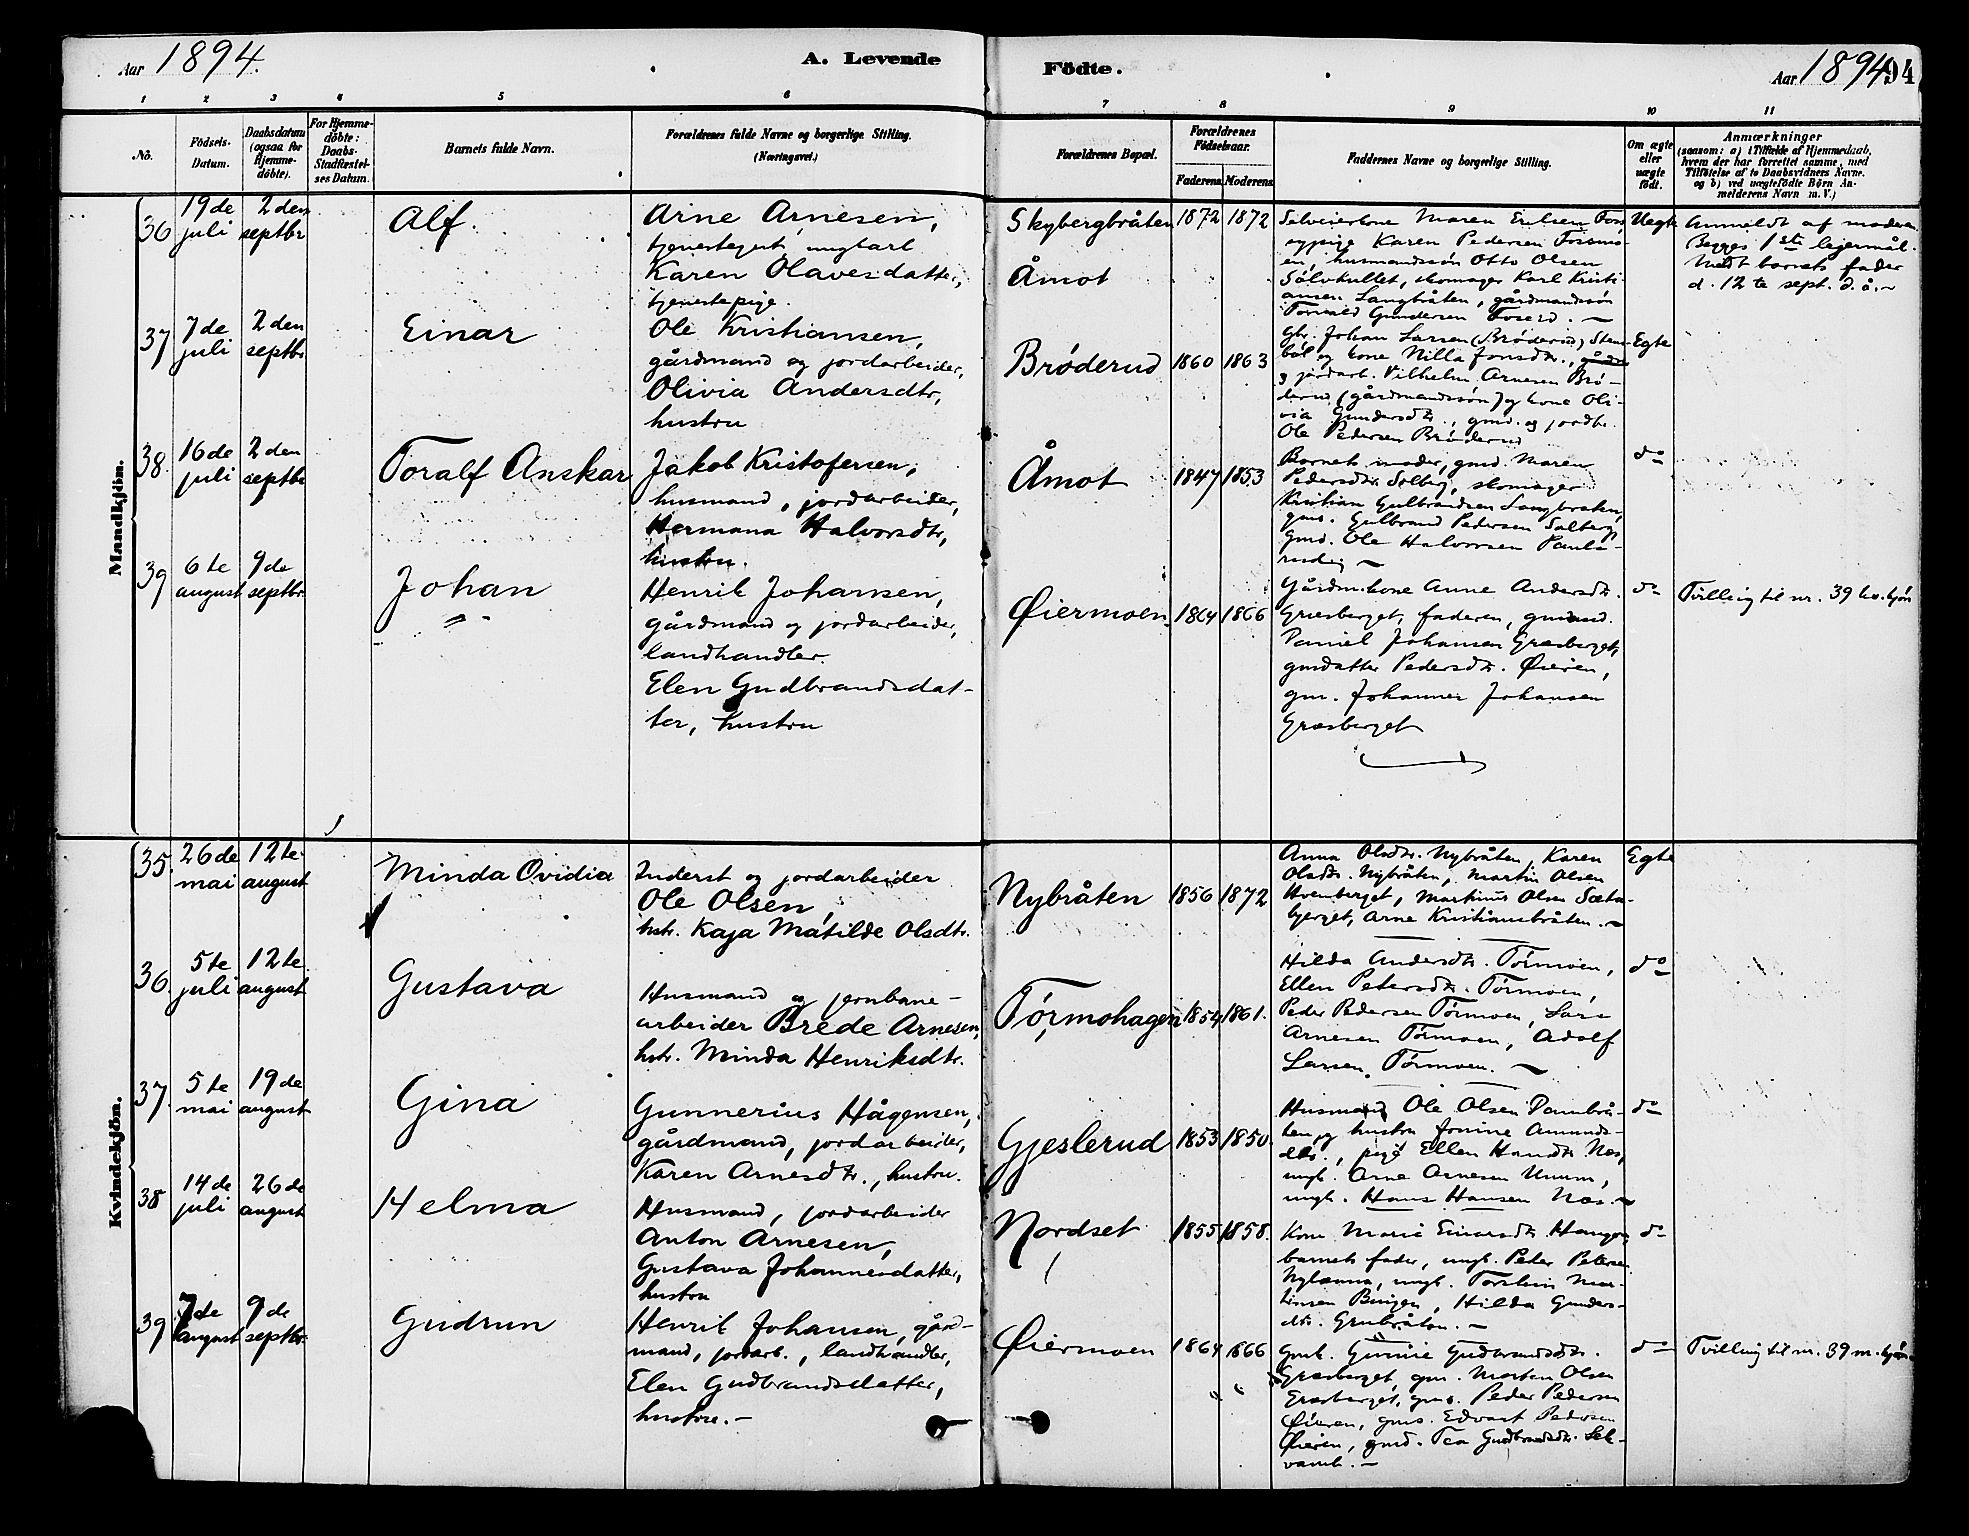 Aar 1894.
A. Levende
Födte.
Aar 1894 94
1 2 3 4 5 6 7 8 9 10 11
No.
Födsels-
Datum.
Daabsdatum
(ogsaa for
Hjemme-
döbte).
For Hjemme-
döbte:
Daabs-
Stadfæstel-
ses Datum.
Barnets fulde Navn.
Forældrenes fulde Navne og borgerlige Stilling.
(Næringsvei.)
Forældrenes Bopæl.
Forældrenes
Födselsaar.
Faderens Moderens
Faddernes Navne og borgerlige Stilling.
Om ægte
eller
uægte
födt.
Anmærkninger
(saasom: a) i Tilfælde af Hjemmedaab,
hvem der har forrettet samme, med
Tilföielse af to Daabsvidners Navne.
og b) ved uægtefödte Börn An-
melderens Navn m. V.)
Mandkjön.
36
19de
juli
2den
septbr
Alf.
Arne Arnesen,
tjenestegut, ungkarl
Karen Olavesdatter,
tjenestepige.
Skybergbråten
Åmot
1872 1872
Selveierkone Maren
pige Karen Pedersen Fossmo-
en, husmandssøn Otto Olsen
Sölvhullet, skomager Karl Kristi-
ansen Langbråten, gårdmandssön
Gundersen
Uegte
Anmeldt af moderen
Begges 1ste lejermål.
barnets fader
d. 12te sept. d. å. –
37
7de
juli
2den
septbr.
Einar
Ole Kristiansen,
gårdmand og jordarbeider,
Olivia Andersdtr,
hustru
Brøderud
1860 1863
gbr. Johan Larsen (Brøderud)
og kone Nilla Jonsdtr.,
jordarb. Vilhelm Arnesen Brø-
derud (gårdmandssøn) og kone Oli-
via Gundersdtr., gmd. og jordbr.
Ole Pedersen Brøderud
Egte
38
16de
juli
2den
septbr
Toralf Anskar
Jakob Kristofersen,
husmand, jordarbeider,
Hermana Halvorsdtr,
hustru.
Åmot
1847 1853
Barnets moder, gmd. Maren
Pedersdtr. Solberg, skomager
Kristian Gulbrandsen Langbraten,
gms. Gulbrand Pedersen Solberg,
gmd. Ole Halvorsen Pauls-
rudeie –
do
39
6te
august
9de
septbr.
Johan
Henrik Johansen,
gårdmand og jordarbeider,
landhandler.
Elen Gudbrandsdat-
ter, hustru
Øiermoen.
1864 1866
Gårdm.kone Anne Andersdtr.
Græsberget, faderen, gmand.
Daniel Johansen Græsberget,
gmdatter Pedersdtr. Øieren,
gm. Johannes Johansen
Græsberget
do
Tvilling til nr. 39 kv. kjön
Kvindekjön.
35.
26de
mai
12te
august
Minda Ovidia
Inderst og jordarbeider
Ole Olsen,
hstr. Kaja Matilde Olsdtr.
Nybråten
1856 1872
Anna Olsdtr. Nybråten, Karen
Olsdtr. Nybråten, Martin Olsen
Hvenberget, Martinus Olsen Sæta-
berget, Arne Kristiansbråten. –
Egte
36.
5te
juli
12te
august
Gustava
Husmand og jernbane-
arbeider Brede Arnesen,
hstr. Minda Henriksdtr.
Tørmohagen
1854 1861.
Hilda Andersdtr. Tørmoen,
Ellen Petersdtr. Tørmoen,
Peder Pedersen Tørmoen, Lars
Arnesen Tørmoen, Adolf
Larsen, Tørmoen. –
do
37.
5te
mai
19de
august
Gina
Gunnerius Hågensen,
gårdmand, jordarbeider,
Karen Arnesdtr., hustru.
Gjeslerud
1853 1850.
Husmand Ole Olsen Dambrå-
ten og hustru Jonine Amunds-
dtr., pige Ellen Hansdtr. Næs,
ungk. Arne Arnesen Unum,
ungk. Hans Hansen Næs. –
do
38
14de
juli
26de
august
Helma
Husmand, jordarbeider
Anton Arnesen,
Gustava Johannesdatter,
hustru
Nordset
1855 1858.
Kone Marie Einarsdtr. Haugen,
barnets fader, ungk. Peder Petersen
Nylænna, ungk. Torstein Mar-
tinsen Bingen, Hilda Gunders-
dtr. Grubråten. –
do
39.
7de
august
9de
septbr.
Gudrun
Henrik Johansen, gård-
mand, jordarb., landhandler,
Elen Gudbrandsdatter,
hustru. –
Øiermoen
1864 1866
Gmk. Gunnie Gudbrandsdtr.
Græsberget, gm. Morten Olsen
Græsberget, gms. Peder Pedersen
Øieren, gms. Edvart Pedersen
Øieren, gmd. Tea Gudbrandsdtr.
do
Tvilling til nr. 39 m. kjön.